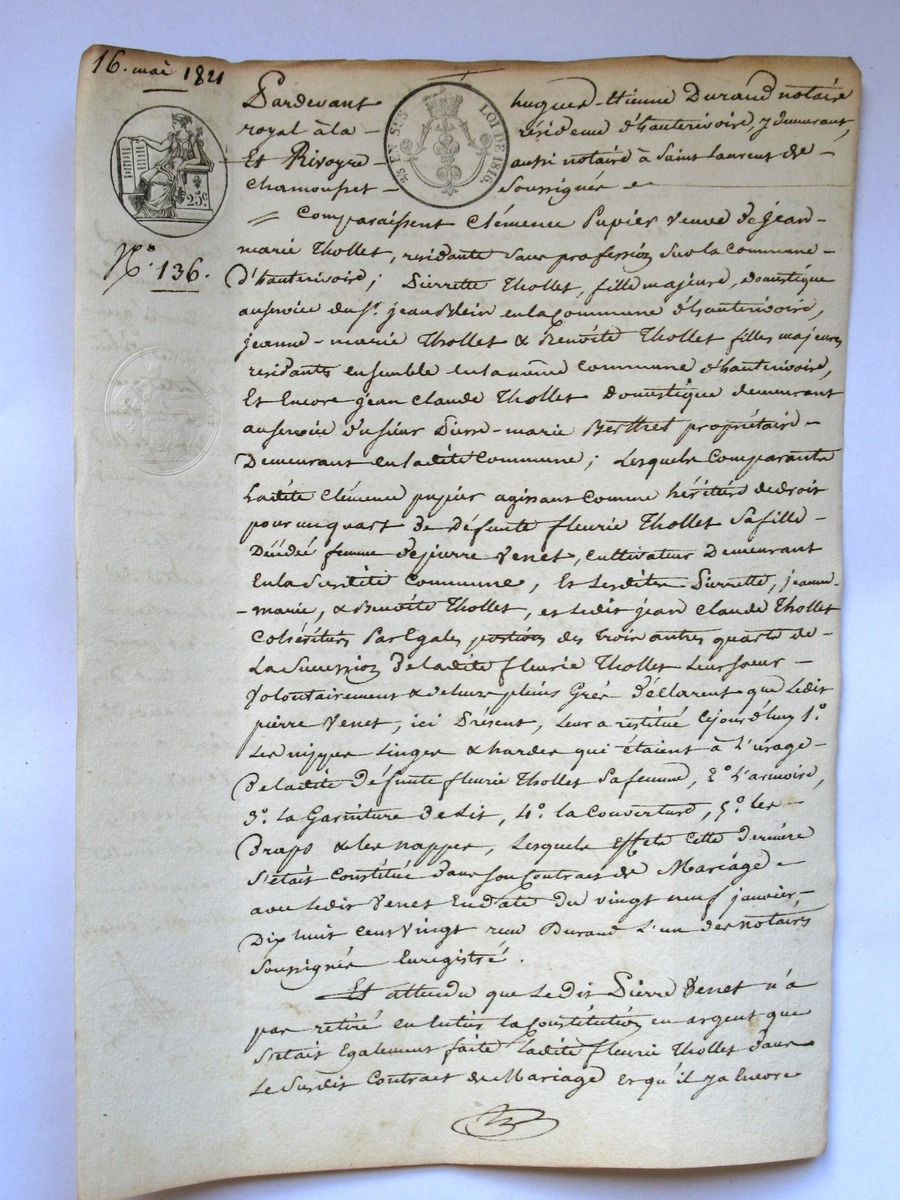 16. mai 1821
Pardevant hugues-Etienne Durand notaire
royal à la résidence d'hauterivoire, y demeurant,
Et Rivoyre aussi notaire à Saint Laurent de
Chamousset Soussignés
25 EN SUS LOI DE 1816.
25c.
No. 136.
Comparaissent Clémence Pupier veuve de jean-
marie Thollet, residante sans profession sur la Commune
d'hauterivoire; Pierrette Thollet, fille majeure, domestique
au service du Sr. jean en la Commune d'hauterivoire,
jeanne-marie Thollet & Benoite Thollet filles majeures
residantes ensemble en la même Commune d'hauterivoire,
Et Encore jean Claude Thollet domestique demeurant
au service d'u sieur Pierre-marie Berthet propriétaire
Demeurant en ladite Commune; Lesquels Comparants
Ladite Clémence pupier agissant Comme héritiere de droit
pour un quart de Défunte fleurie Thollet Sa fille
Décédée femme de pierre Venet, Cultivateur Demeurant
En la Susdite Commune, Et Lesdites Pierrette, jeanne
-marie, & Benoite Thollet, et Ledit jean Claude Thollet
Cohéritiers Par Egales portions des trois autres quarts de
La Succession de ladite fleurie Thollet Leur soeur
Volontairement & de leurs pleins Grés déclarent que Ledit
pierre Venet, ici Présent, Leur a restitué Cejourd'huy 1o.
Les nippes Linges & hardes qui étaient à L'usage
De ladite Défunte fleurie Thollet Sa femme, 2o. L'armoire,
3o. La Garniture de Lit, 4o. la Couverture, 5o. les
Draps & les nappes, Lesquels effets cette derniere
S'était Constitué dans son Contrat de Mariage
avec Ledit Venet En date du vingt neuf janvier
Dix huit Cent Vingt recu Durand L'un des notaires
Soussignés Enregistré.
Et attendu que Ledit Pierre Venet n'a
pas retiré en Entier la Constitution en argent que
S'etait Egalement faite Ladite fleurie Thollet dans
Le Susdit Contrat de Mariage et qu'il y a Encore